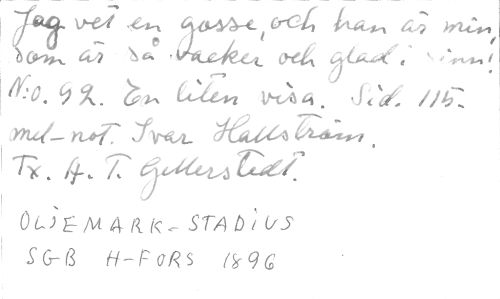 Jag vet en gosse, och han är min,
som är så vacker och glad i sinn!
N:o. 92. En liten visa. Sid. 115.
mel-not. Ivar Hallström.
Tx. A. T. Gellerstedt.
OLSEMARK-STADIUS
SGB H-FORS 1896